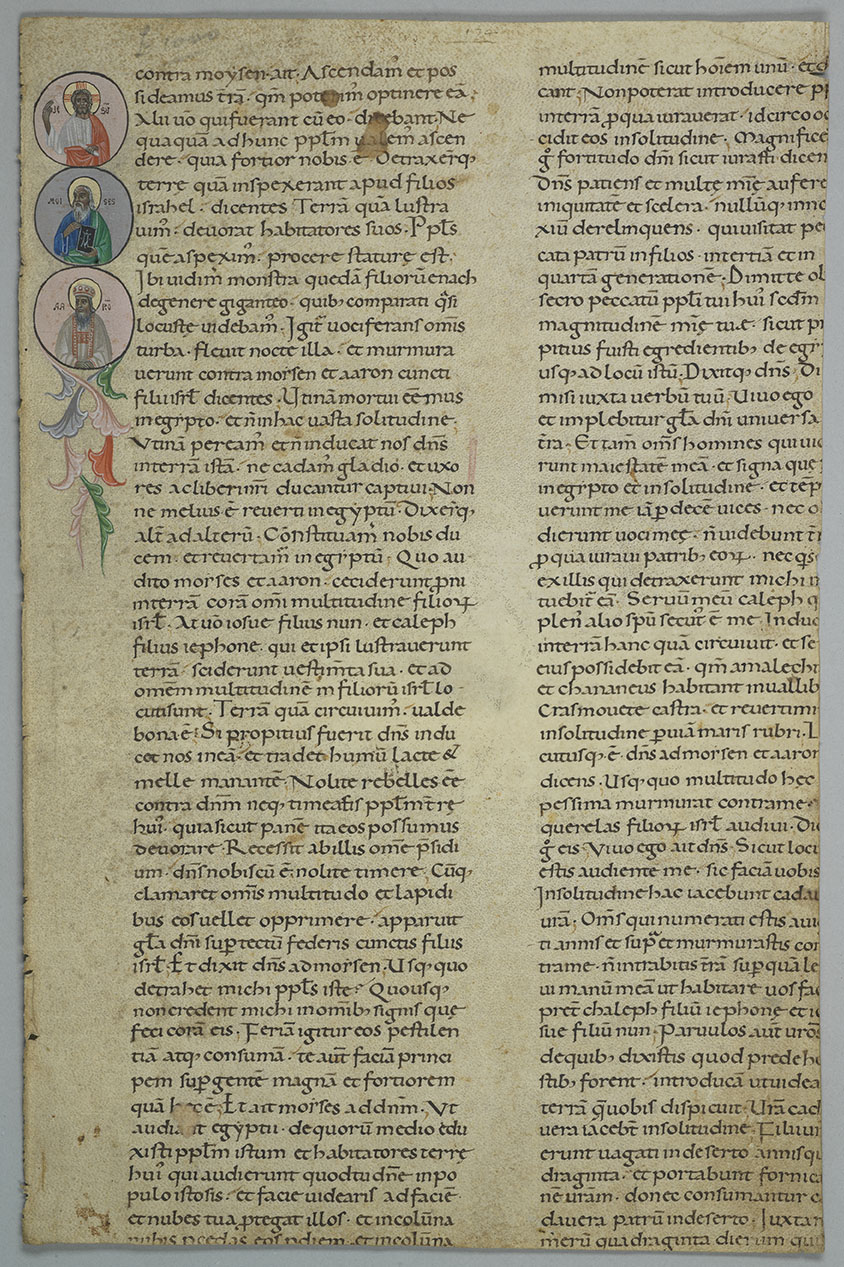 contra moysen· ait· Ascendam̄ et pos
sideamus t̄rā· qm̄ poterim̄ optinere eā·
Alii ūo qui fuerant cū eo· dicebant· Ne
quaquā ad hunc pp̄lm̄ ualem̄ ascen
dere· quia fortior nobis ē· Detraxerq;
terre quā inspexerant apud filios
israhel· dicentes· Terrā quā lustra
uim̄· deuorat habitatores suos· Ppl̄s
quē aspexim̄· procere stature est·
Ibi uidim̄ monstra quedā filiorū enach
de genere giganteo· quib; comparati q̄si
locuste uidebam̄· Igit̄ uociferans om̄is
turba· fleuit nocte illa· et murmura
uerunt contra moysen et aaron cuncti
filii isrl̄ dicentes· Utinā mortui eēmus
in egypto· et n̄ in hac uasta solitudine·
Vtinā peream̄ et n̄ inducat nos dn̄s
in terrā istā· ne cadam̄ gladio· et uxo
res ac liberi nr̄i ducantur captiui· Non
ne melius ē reuerti in egyptū· Dixerq̄;
alt̄ ad alterū· Constituam̄ nobis du
cem· et reuertam̄ in egyptū· Quo au
dito moyses et aaron· ceciderunt ꝓni
in terrā corā om̄i multitudine filioꝝ
isrl̄· At ūo iosue filius nun· et caleph
filius iephone· qui et ipsi lustrauerunt
terrā· sciderunt uestim̄ta sua· et ad
omēm multitudinē filiorū isrl̄ lo
cuti sunt· Terrā quā circuiuim̄· ualde
bona ē· Si propitius fuerit dn̄s indu
cet nos in eā· et tradet humū lacte &
melle manantē· Nolite rebelles eē
contra dn̄m neq; timeatis pp̄lm t̄re
hui᾿· quia sicut panē ita eos possumus
deuorare· Recessit ab illis om̄e p̄sidi
um· dn̄s nobiscū ē· nolite timere· Cūq;
clamaret om̄is multitudo et lapidi
bus eos uellet opprimere· apparuit
gl̄a dn̄i suꝑ tectū federis cunctis filiis
isrl̄· Et dixit dn̄s ad moysen· Usq; quo
detrahet michi ppl̄s iste· Quousq;
non credent michi in omib; signis que
feci corā eis· Feriā igitur eos pestilen
tiā atq; consumā· te aut̄ faciā princi
pem suꝑ gentē magnā et fortiorem
quā hec ē· Et ait moyses ad dn̄m· Vt
audiant egyptii· de quorū medio edu
xisti pp̄lm istum et habitatores terre
hui᾿ qui audierunt quod tu dn̄e in po
pulo isto sis· et facie uidearis ad faciē
et nubes tua ꝓtegat illos· et in colūna
nubis precedas eos ꝑ diem· et in colūna
multitudinē sicut hoīem unū· et
cant· Non poterat introducere
in terrā ꝓ qua iurauerat· idcirco
cidit eos in solitudine· Magnifice
ḡ fortitudo dn̄i sicut iurasti dicen
Dn̄s patiens et multe mīe auferē
iniquitatē et scelera· nullūq; inno
xiū derelinquens· qui uisitat
cata patrū in filios· in tertiā et in
quartā generationē· Dimitte ob
secro peccatū pp̄li tui hui᾿ scd̄m
magnitudinē mīe tue· sicut
pitius fuisti egredientib; de
usq; ad locū istū· Dixitq; dn̄s· Di
misi iuxta uerbū tuū· Uiuo ego
et implebitur gl̄a dn̄i uniuersa
t̄ra· Et tam̄ om̄s homines qui
runt maiestatē meā· et signa que
in egypto et in solitudine· et tēp
uerunt me iā ꝑ decē uices· nec
dierunt uoci mee· n̄ uidebunt
ꝓ qua iuraui patrib; eoꝝ· nec
ex illis qui detraxerunt michi in
tuebit̄ eā· Seruū meū caleph
plen᾿ alio sp̄u secut᾿ ē me· Inducā
in terrā hanc quā circuiuit· et
eius possidebit eā· qm̄ amalechi
et chananeus habitant in uallib
Cras mouete castra· et reuertimi
in solitudinē ꝑ uiam maris rubri· L
cutusq; ē dn̄s ad moysen et aaron
dicens· Usq; quo multitudo hec
pessima murmurat contra me·
querelas filioꝝ isrl̄ audiui· Dic
ḡ eis· Viuo ego ait dn̄s· Sicut locu
estis audiente me· sic faciā uobis
In solitudine hac iacebunt cada
ur̄a· Om̄s qui numerati estis
ti annis et sup̄· et murmurastis
tra me· n̄ intrabitis t̄rā suꝑ quā
ui manū meā ut habitare uos
pret̄ chaleph filiū iephone et
sue filiū nun· Paruulos aut̄ ur̄os
de quib; dixistis quod prede
stib; forent· introducā ut uidea
terrā q̄ uobis displicuit· Ur̄a
uera iacebt̄ in solitudine· Filii
erunt uagati in deserto annis
draginta· et portabunt fornica
nē ur̄am· donec consumantur
dauera patrū in deserto· Iuxta
merū quadraginta dierum